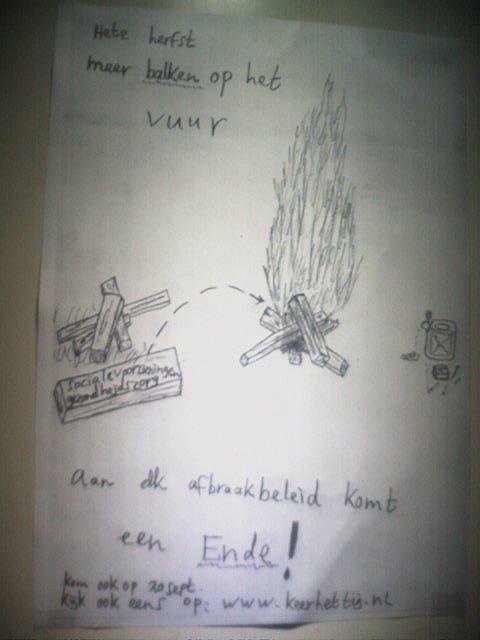 Hete herfst
meer balken op het
vuur
Sociale voorzieningen
gezondheidszorg
aan elk afbraakbeleid komt
een Ende!
kom ook op 20 sept.
kijk ook eens op: www.keerhettij.nl